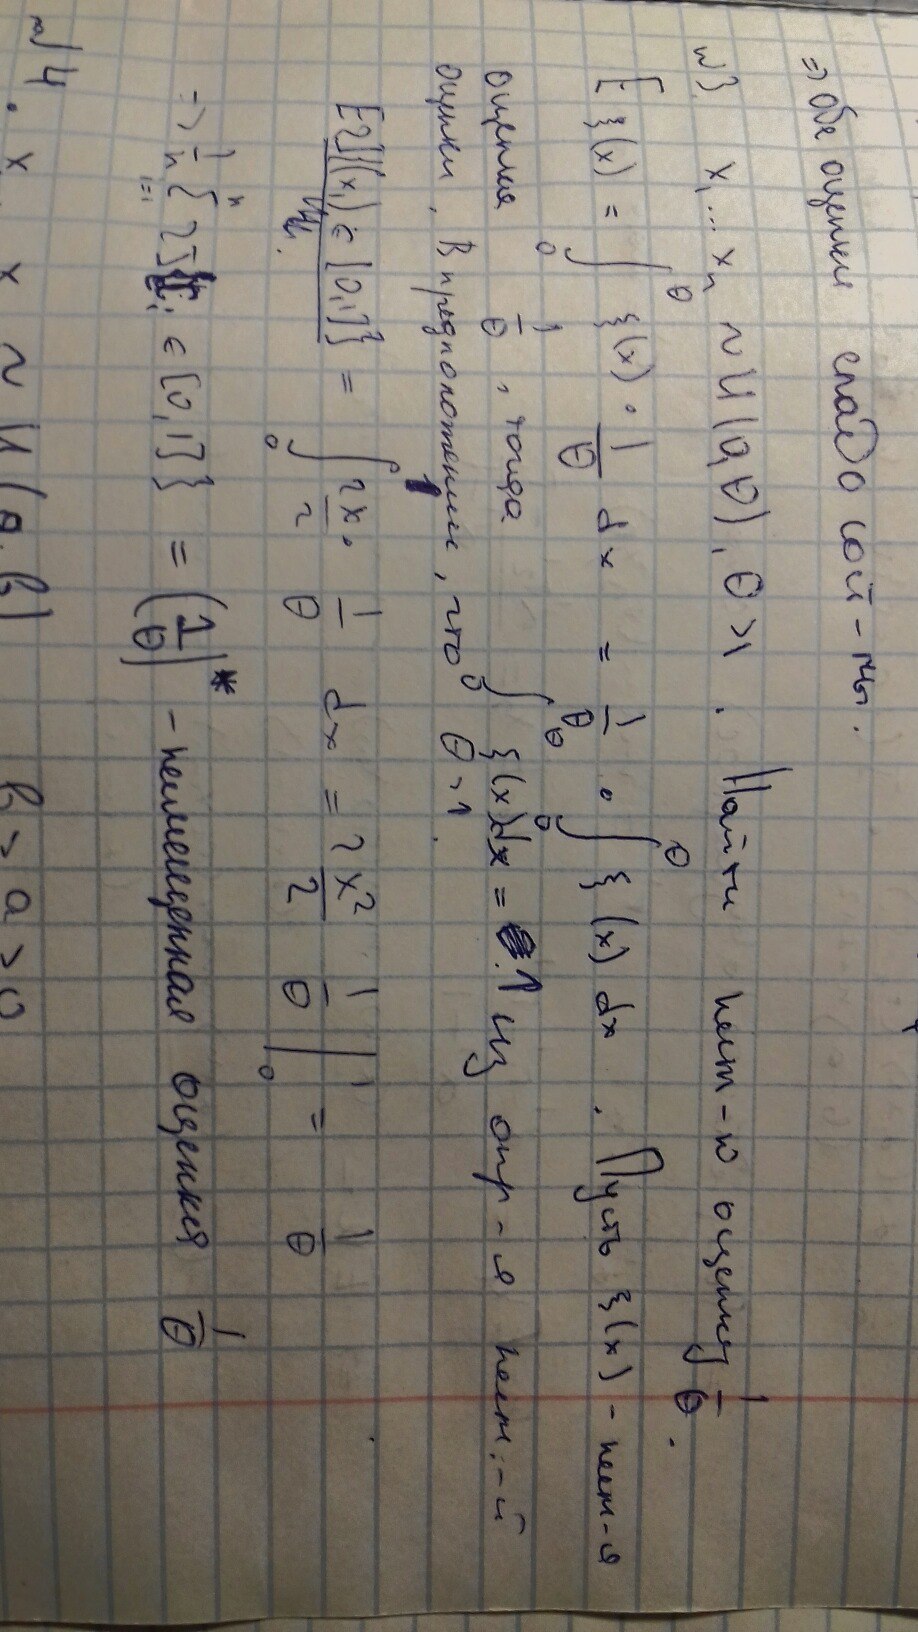 => обе оценки слабо сост-ны.
№3 x₁...xₙ ~ U(0, θ), θ>1. Найти несм-ю оценку 1/θ.
E ξ(x) = ∫₀^θ ξ(x) · 1/θ dx = 1/θ · ∫₀^θ ξ(x) dx. Пусть ξ(x) - несм-я
оценка 1/θ, тогда ∫₀^θ ξ(x)dx = 1 из опр-я несм.-й
оценки. В предположении, что θ>1.
E2I{(x₁) ∈ [0,1]} = ∫₀¹ 2x · 1/θ dx = 2 x²/2 1/θ |₀¹ = 1/θ
=> 1/n Σᵢ₌₁ⁿ 2I ∈ [0,1]} = (1/θ)* - несмещенная оценка 1/θ
№4. x x ~ U(a, b) b > a > 0